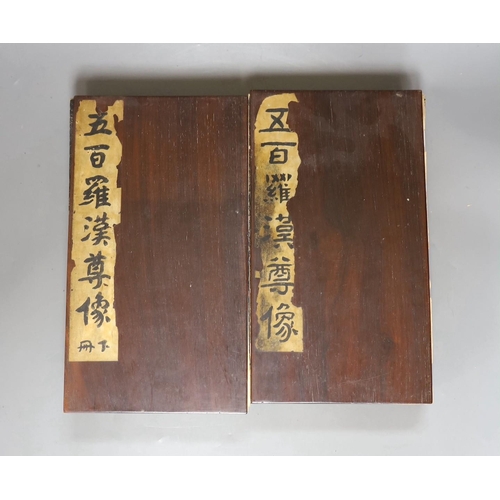 五百羅漢尊像
五百羅漢尊像
下冊